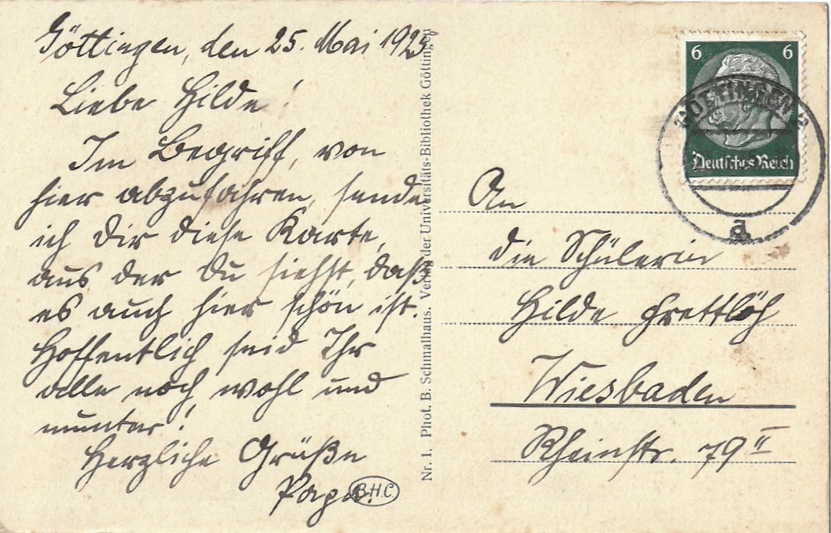 Göttingen, den 25. Mai 1925
Liebe Hilde!
Im Begriff, von
hier abzufahren, sende
ich Dir diese Karte,
aus der Du siehst, daß
es auch hier schön ist.
Hoffentlich seid Ihr
alle noch wohl und
munter!
Herzliche Grüße
Papa.
BHC
Nr. 1. Phot. B. Schmalhaus. Verlag der Universitäts-Bibliothek Göttingen
6 6
Deutsches Reich
GÖTTINGEN
a
An
die Schülerin
Hilde Frettlöh
Wiesbaden
Rheinstr. 79 II